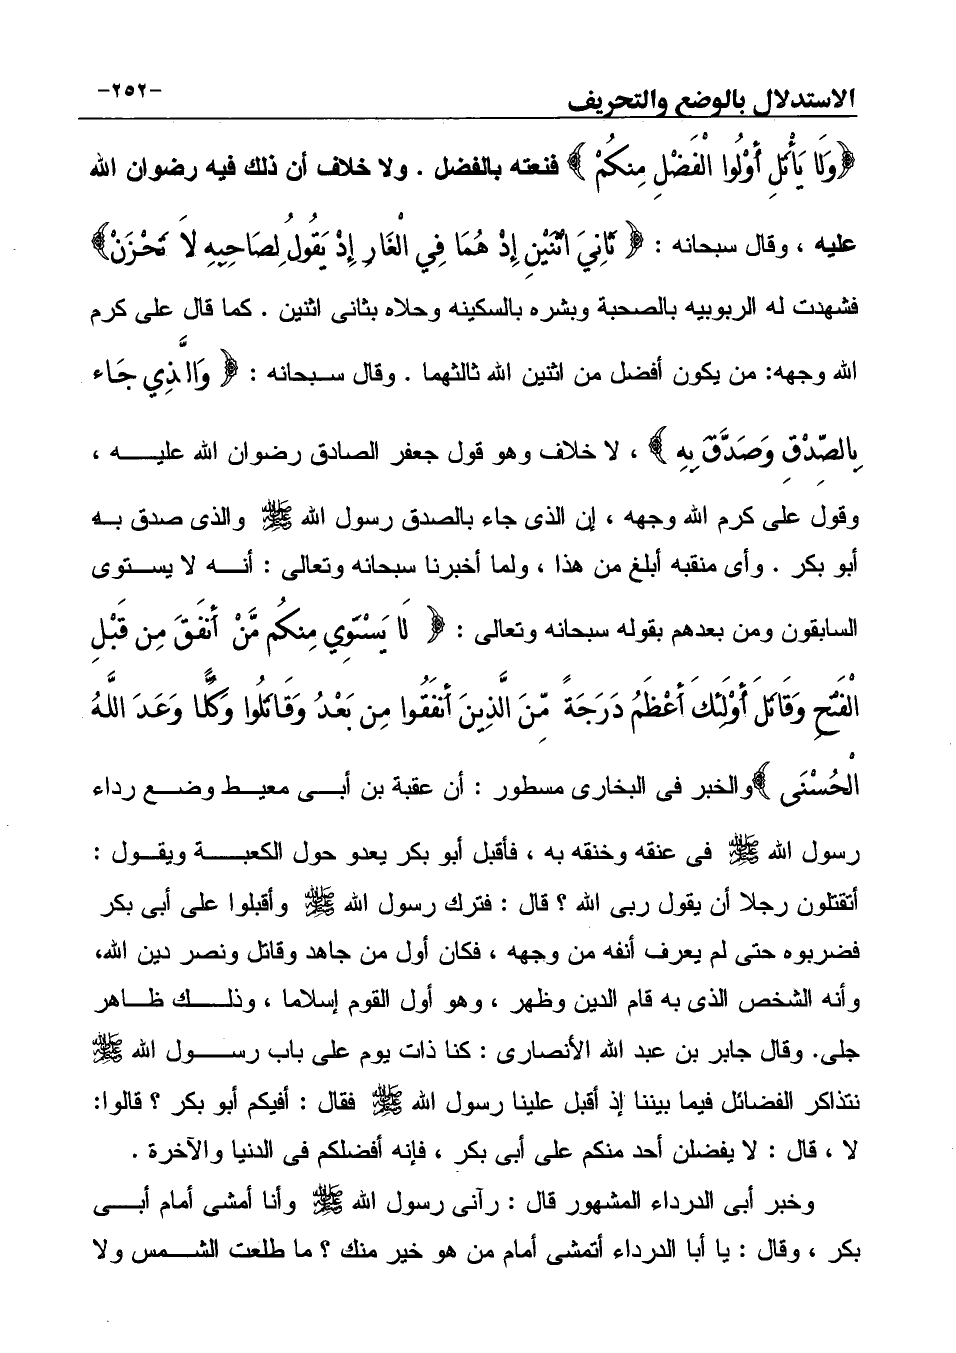 الاستدلال بالوضع والتحريف
-٢٥٢-
﴿وَلَا يَأْتَلِ أُوْلُوا الْفَضْلِ مِنكُمْ ﴾ فنعته بالفضل . ولا خلاف أن ذلك فيه رضوان الله
عليه ، وقال سبحانه : ﴿ ثَانِيَ اثْنَيْنِ إِذْ هُمَا فِي الْغَارِ إِذْ يَقُولُ لِصَاحِبِهِ لَا تَحْزَنْ﴾
فشهدت له الربوبيه بالصحبة وبشره بالسكينه وحلاه بثانى اثنين . كما قال على كرم
الله وجهه: من يكون أفضل من اثنين الله ثالثهما . وقال سبحانه : ﴿ وَالَّذِي جَاء
بِالصِّدْقِ وَصَدَّقَ بِهِ ﴾ ، لا خلاف وهو قول جعفر الصادق رضوان الله عليه ،
وقول على كرم الله وجهه ، إن الذى جاء بالصدق رسول الله ﷺ والذى صدق به
أبو بكر . وأى منقبه أبلغ من هذا ، ولما أخبرنا سبحانه وتعالى : أنه لا يستوى
السابقون ومن بعدهم بقوله سبحانه وتعالى : ﴿ لَا يَسْتَوِي مِنكُم مَّنْ أَنفَقَ مِن قَبْلِ
الْفَتْحِ وَقَاتَلَ أُوْلَئِكَ أَعْظَمُ دَرَجَةً مِّنَ الَّذِينَ أَنفَقُوا مِن بَعْدُ وَقَاتَلُوا وَكُلًّا وَعَدَ اللَّهُ
الْحُسْنَى ﴾والخبر فى البخارى مسطور : أن عقبة بن أبى معيط وضع رداء
رسول الله ﷺ فى عنقه وخنقه به ، فأقبل أبو بكر يعدو حول الكعبة ويقول :
أتقتلون رجلا أن يقول ربى الله ؟ قال : فترك رسول الله ﷺ وأقبلوا على أبى بكر
فضربوه حتى لم يعرف أنفه من وجهه ، فكان أول من جاهد وقاتل ونصر دين الله،
وأنه الشخص الذى به قام الدين وظهر ، وهو أول القوم إسلاما ، وذلك ظاهر
جلى. وقال جابر بن عبد الله الأنصارى : كنا ذات يوم على باب رسول الله ﷺ
نتذاكر الفضائل فيما بيننا إذ أقبل علينا رسول الله ﷺ فقال : أفيكم أبو بكر ؟ قالوا:
لا ، قال : لا يفضلن أحد منكم على أبى بكر ، فإنه أفضلكم فى الدنيا والآخرة .
وخبر أبى الدرداء المشهور قال : رآنى رسول الله ﷺ وأنا أمشى أمام أبى
بكر ، وقال : يا أبا الدرداء أتمشى أمام من هو خير منك ؟ ما طلعت الشمس ولا